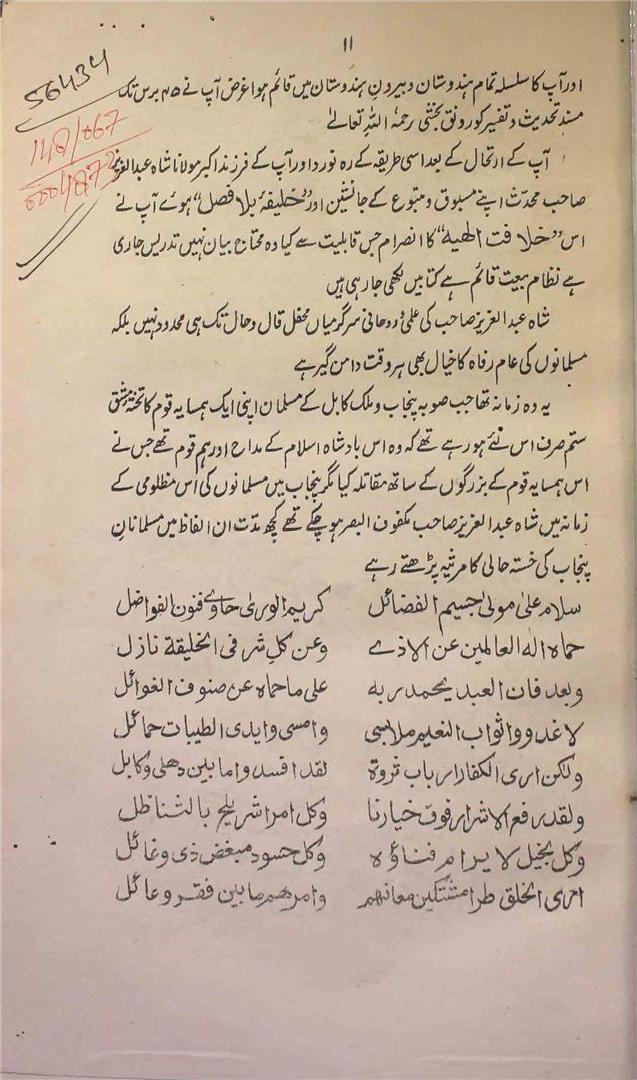 ۱۱
56434
148/067
اور آپ کا سلسلہ تمام ہندوستان و بیرونِ ہندوستان میں قائم ہوا غرض آپ نے ۴۵ برس تک
مسند تحدیث و تفسیر کو رونق بخشی رحمہ اللہ تعالےٰ
آپ کے ارتحال کے بعد اسی طریقہ کے رہ نورد اور آپ کے فرزند اکبر مولانا شاہ عبد العزیز
صاحب محدّث اپنے مسبوق و متبوع کے جانشین اور "خلیفۂ بلا فصل" ہوئے آپ نے
اس "خلافت الٰھیہ" کا انصرام جس قابلیت سے کیا وہ محتاج بیان نہیں تدریس جاری
ہے نظام بیعت قائم ہے کتابیں لکھی جا رہی ہیں
شاہ عبد العزیز صاحب کی علمی و روحانی سرگرمیاں محفل قال و حال تک ہی محدود نہیں بلکہ
مسلمانوں کی عام رفاہ کا خیال بھی ہر وقت دامن گیر ہے
یہ وہ زمانہ تھا جب صوبہ پنجاب و ملک کابل کے مسلمان اپنی ایک ہمسایہ قوم کا تختۂ مشق
ستم صرف اس لئے ہو رہے تھے کہ وہ اس بادشاہ اسلام کے مداح اور ہم قوم تھے جس نے
اس ہمسایہ قوم کے بزرگوں کے ساتھ مقاتلہ کیا مگر پنجاب میں مسلمانوں کی اس مظلومی کے
زمانہ میں شاہ عبد العزیز صاحب مکفوف البصر ہو چکے تھے کچھ مدّت ان الفاظ میں مسلمانانِ
پنجاب کی خستہ حالی کا مرثیہ پڑھتے رہے
سلام علیٰ مولیٰ جسیم الفضائل کریم الوریٰ حاوے فنون الفواضل
حماہ الٰہ العالمین عن الاذے وعن کل شر فی الخلیقة نازل
وبعد فان العبد یحمد ربه علی ما حماہ عن صنوف الغوائل
لاغدو واثواب النعیم ملابسی وامسی وایدی الطیبات حمائل
ولکن اری الکفار ارباب ثروة لقد افسدوا ما بین دهلی وکابل
ولقد رفع الاشرار فوق خیارنا وکل امر اشر یلج بالشناظل
وکل بخیل لا یرام فناؤه وکل حسود مبغض ذی وغائل
اری الخلق طرا مشتکین معانهم وامرهم ما بین فقر وعائل